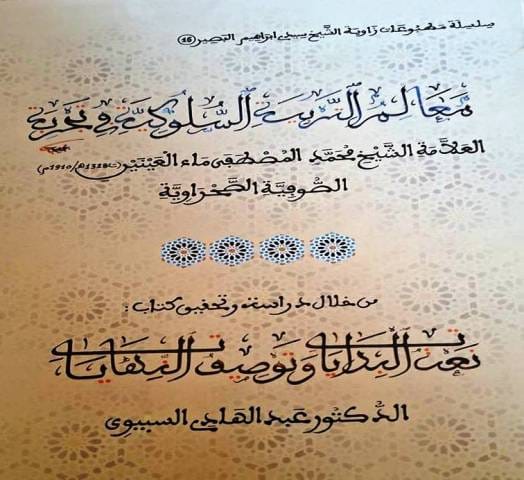 سلسلة مطبوعات زاوية الشيخ سيدي ابراهيم البصير (16)
معالم التربية السلوكية في تجربة
العلامة الشيخ محمد المصطفى ماء العينين (ت1328ه/1910م)
الصوفية الصحراوية
من خلال دراسة وتحقيق كتاب:
نعت البدايات وتوصيف النهايات
الدكتور عبد الهادي السبيوي